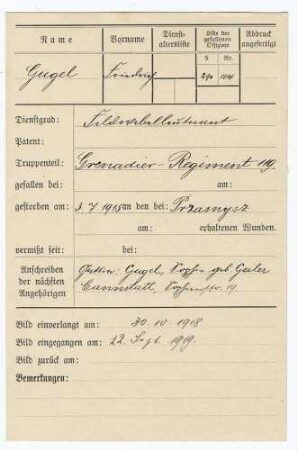 Name Vorname Dienst-altersliste Liste der gefallenen Offiziere Abdruck angefertigt
S Nr.
Gugel Friedrich
Dienstgrad: Feldwebelleutnant
Patent:
Truppenteil: Grenadier-Regiment 119.
gefallen bei: am:
gestorben am: 3.7.1915 an den bei: Przasnysz
am: erhaltenen Wunden.
vermißt seit: bei:
Anschreiben Gattin: Gugel, Sophie geb
der nächsten Cannstatt,
Angehörigen
Bild einverlangt am: 30. 10. 1918
Bild eingegangen am: 22. Sept. 1919.
Bild zurück am:
Bemerkungen: